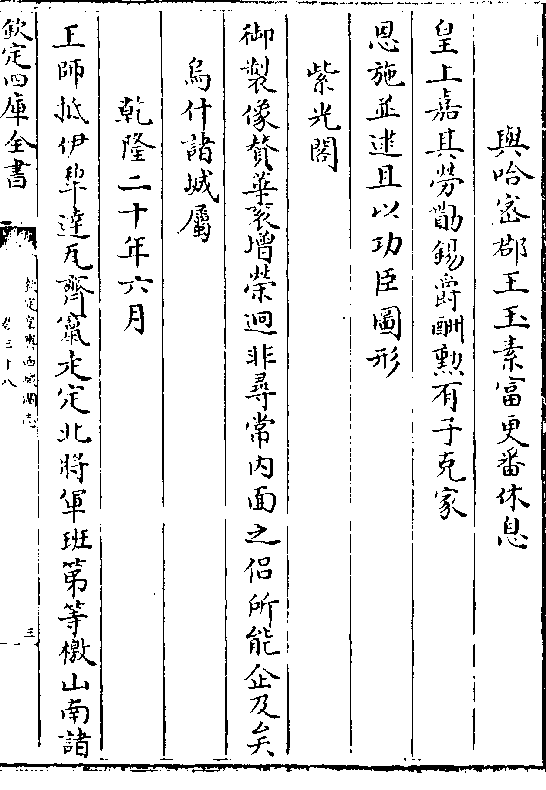 與哈密郡王玉素富更番休息
皇上嘉其勞勩錫爵酬勲有子克家
恩施並逮且以功臣圖形
紫光閣
御製像贊華衮增榮迥非尋常内面之侣所能企及矣
烏什諸城屬
乾隆二十年六月
王師抵伊犂達瓦齊竄走定北將軍班第等檄山南諸
欽定四庫全書
欽定皇輿西域圖志
卷三十八
三